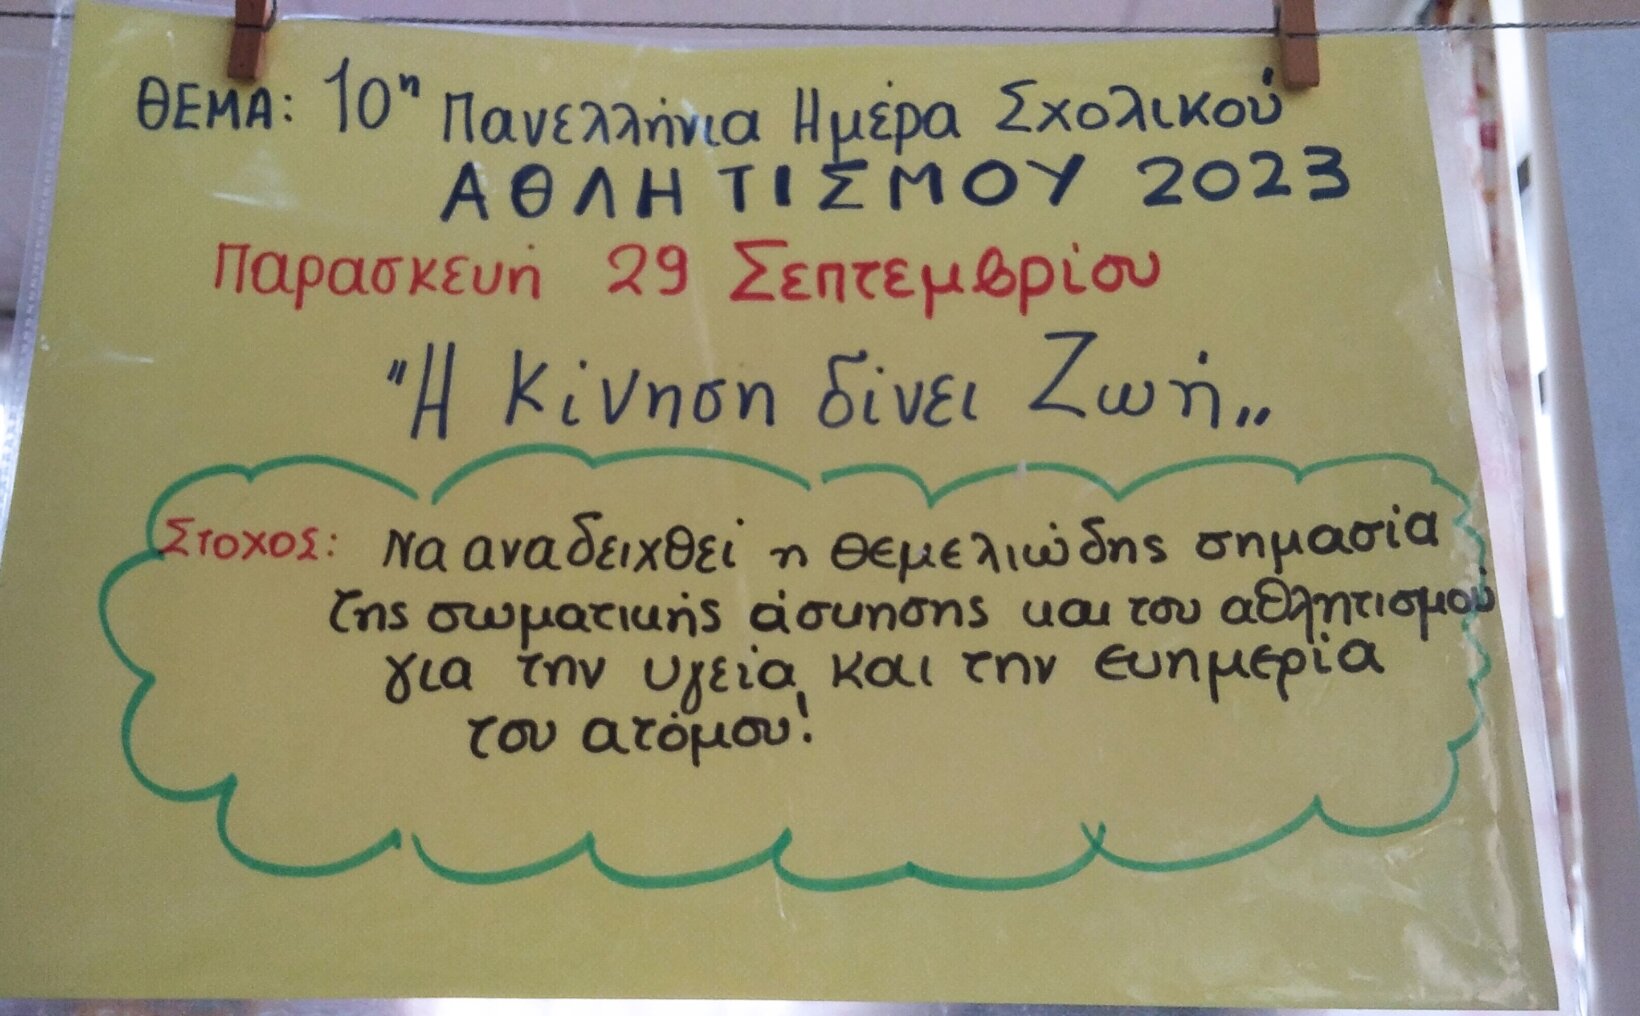 ΘΕΜΑ: 10η Πανελλήνια Ημέρα Σχολικού
ΑΘΛΗΤΙΣΜΟΥ 2023
Παρασκευή 29 Σεπτεμβρίου
"Η Κίνηση δίνει Ζωή„
Στοχος: Να αναδειχθεί η θεμελιώδης σημασία
της σωματικής άσκησης και του αθλητισμού
για την υγεία, και την ευημερία
του ατόμου!